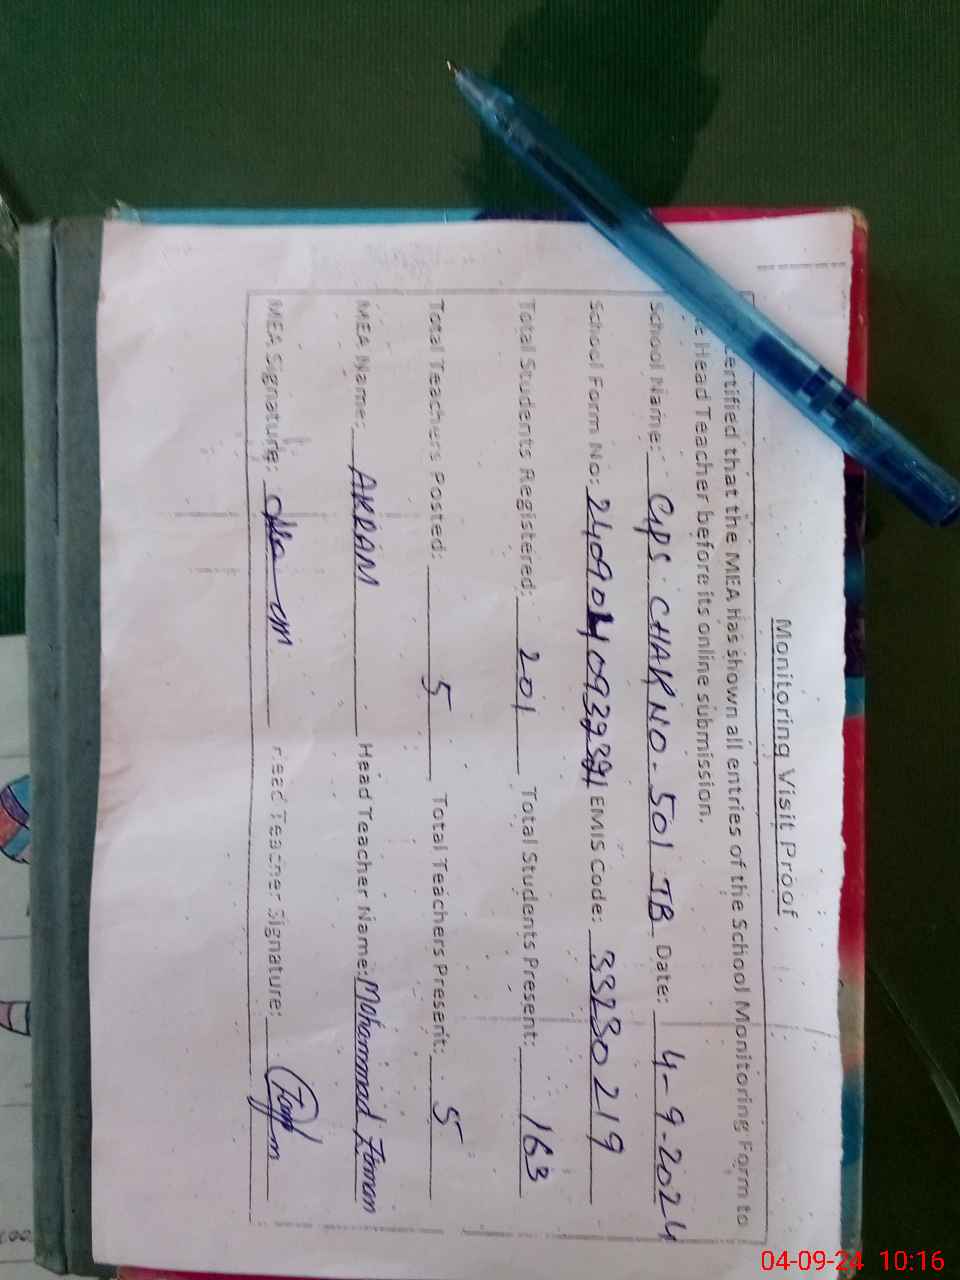 Monitoring Visit Proof
ertified that the MEA has shown all entries of the School Monitoring Form to
e Head Teacher before its online submission.
School Name: GPS CHAK NO. 501 JB Date: 4-9-2024
School Form No: EMIS Code: 33230219
Total Students Registered: 201 Total Students Present: 163
Total Teachers Posted: 5 Total Teachers Present: 5
MEA Name: AKRAM Head Teacher Name: Mohammad
MEA Signature: Head Teacher Signature:
04-09-24 10:16